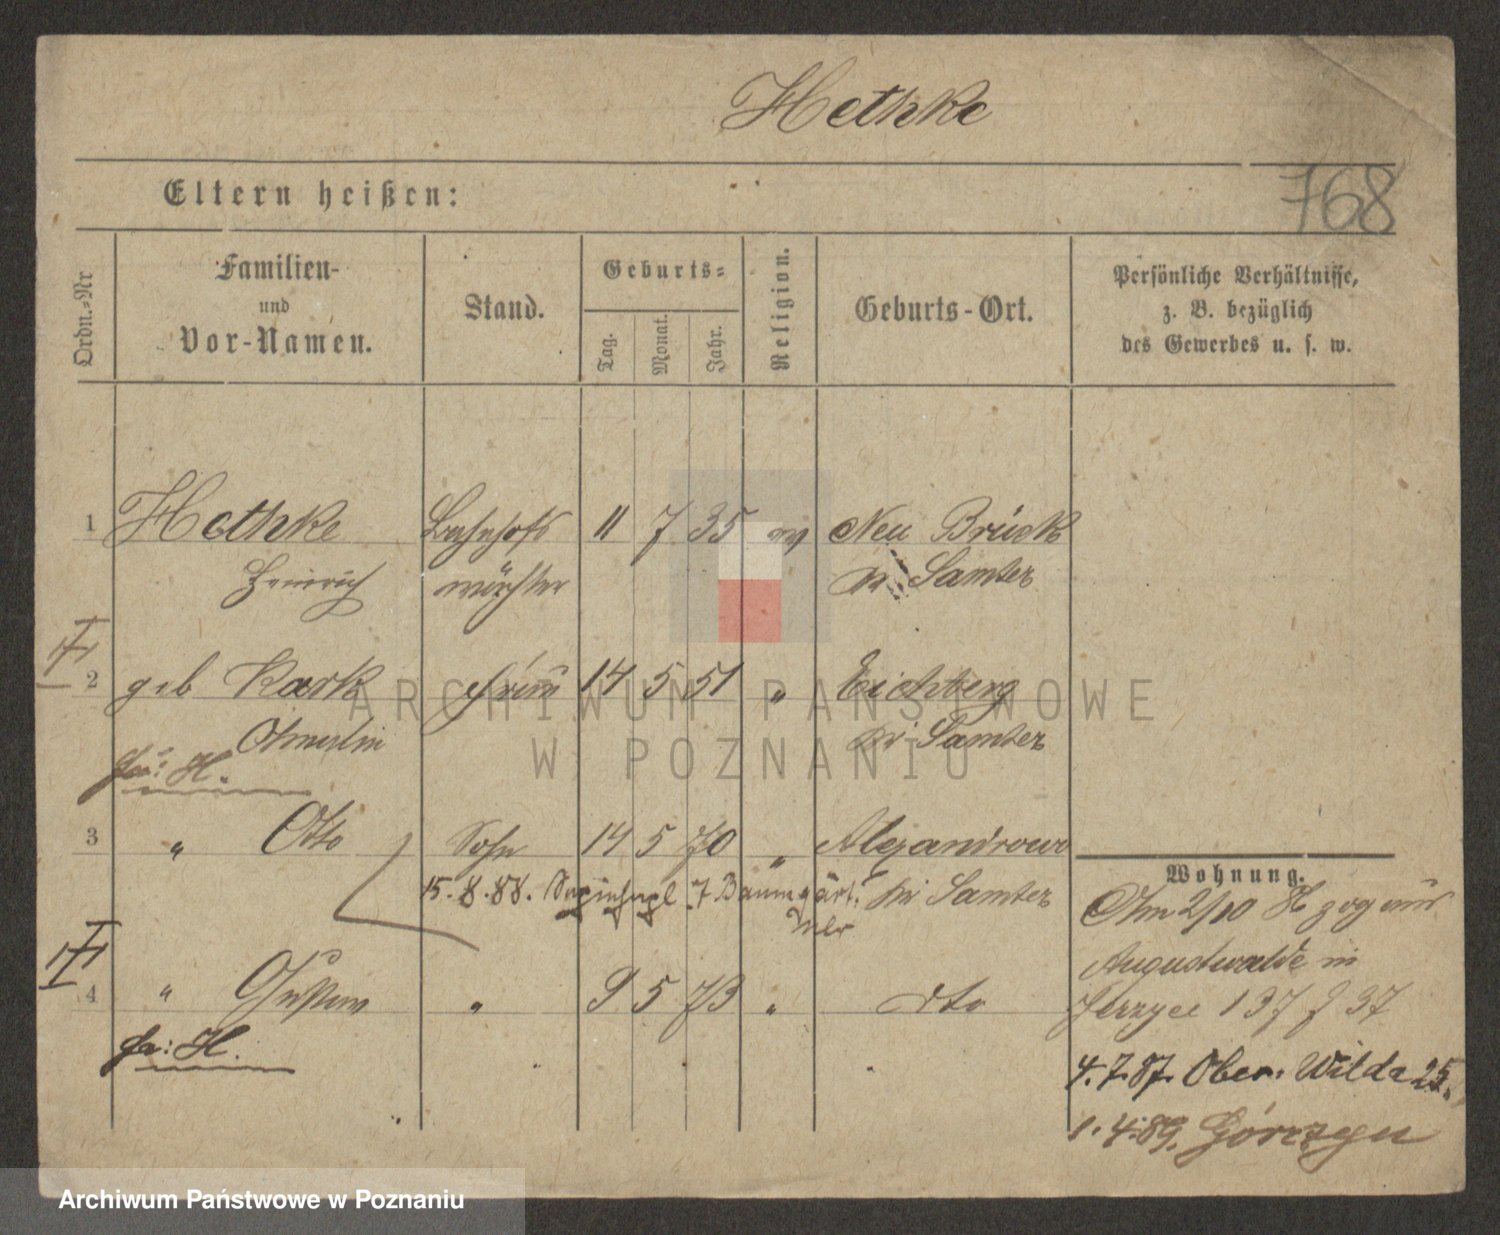 Hethke
768
Eltern heißen:
Ordn.-Nr
Familien-
und
Vor-Namen.
Stand.
Geburts-
Tag. Monat. Jahr.
Religion.
Geburts-Ort.
Persönliche Verhältnisse,
z. B. bezüglich
des Gewerbes u. s. w.
1 Hethke Bahnhofs 11 7 35 ev Neu Brück
Heinrich wächter Kr Samter
2 geb Kask Frau 14 5 51 " Eichberg
Kr Samter
ARCHIWUM PAŃSTWOWE
W POZNANIU
3 " Otto Sohn 14 5 70 " Alexandrowo
15.8.88. 7 Kr Samter
4 " Gustav " 9 5 73 " dto
Wohnung.
Am 2/10 zog
Augustwalde in
Jerzyce 137 37
4.7.87. Ober. Wilda 25.
1.4.89. Górczyn
Archiwum Państwowe w Poznaniu